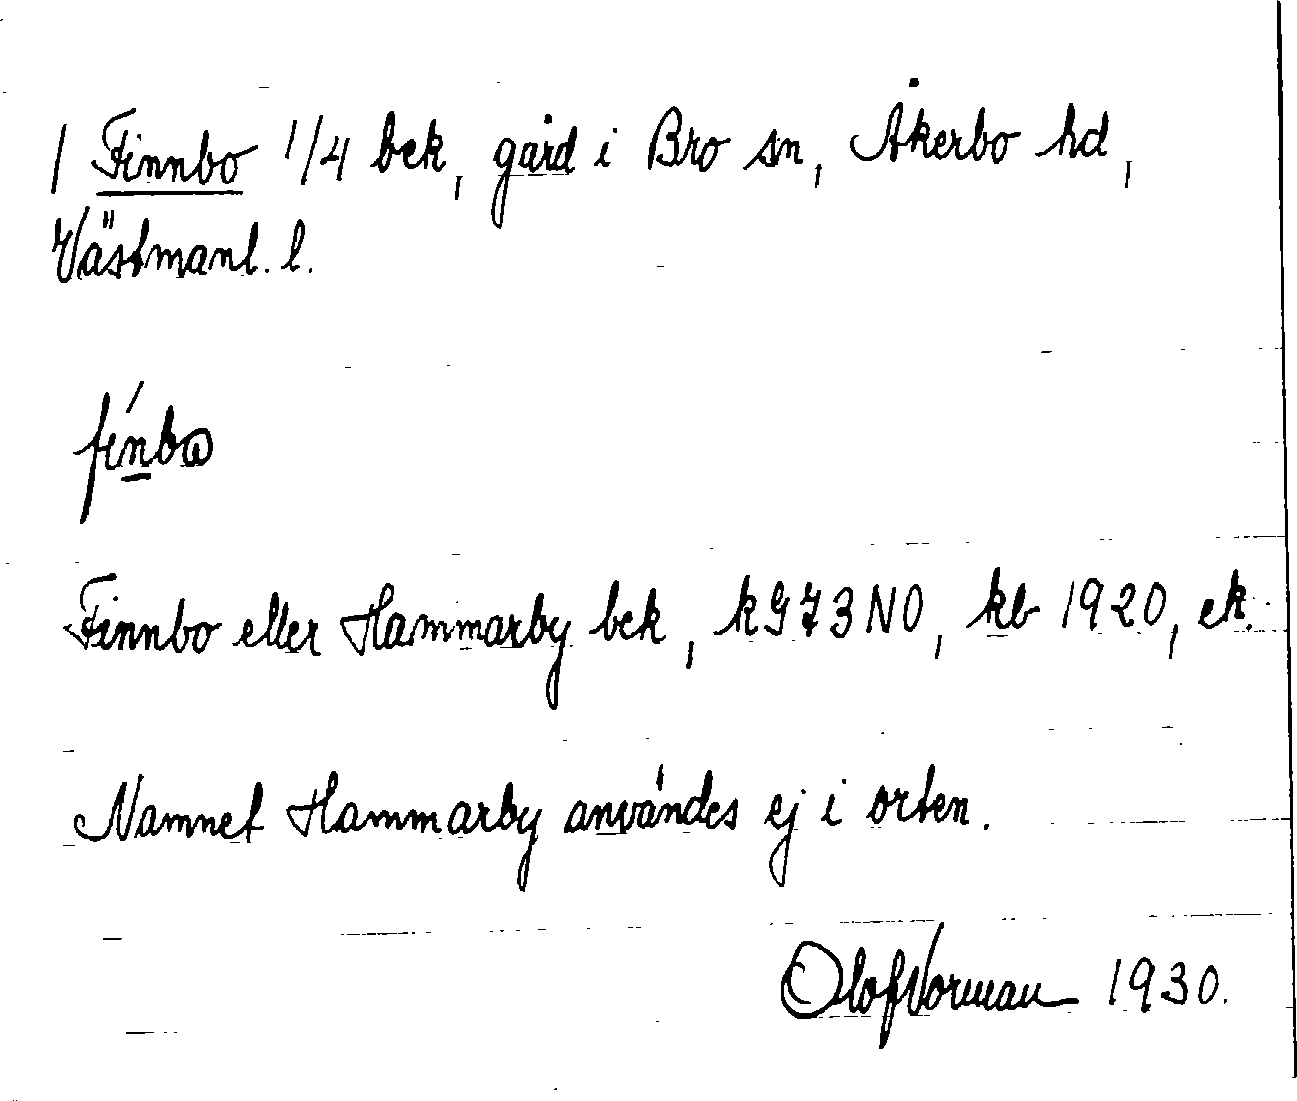 1 Finnbo 1/4 bek, gård i Bro sn, Åkerbo hd,
Västmanl. l.
fínbω
Finnbo eller Hammarby bek, kG73NO, kb 1920, ek.
Namnet Hammarby användes ej i orten.
Olof Vorman 1930.